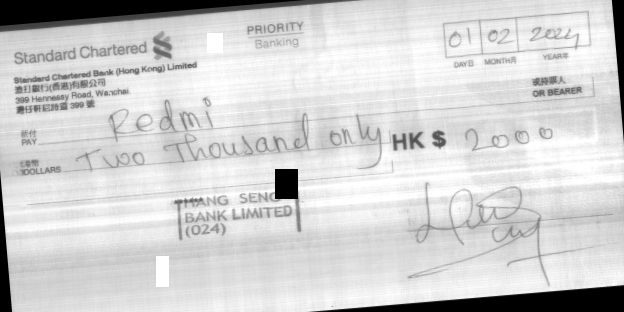 Standard Chartered
PRIORITY
Banking
01 02 2024
DAY日 MONTH月 YEAR年
Standard Chartered Bank (Hong Kong) Limited
渣打銀行(香港)有限公司
399 Hennessy Road, Wanchai
灣仔軒尼詩道 399 號
或持票人
OR BEARER
祈付
PAY Redmi
港幣
DOLLARS Two Thousand only HK $ 2000
HANG SENG
BANK LIMITED
(024)